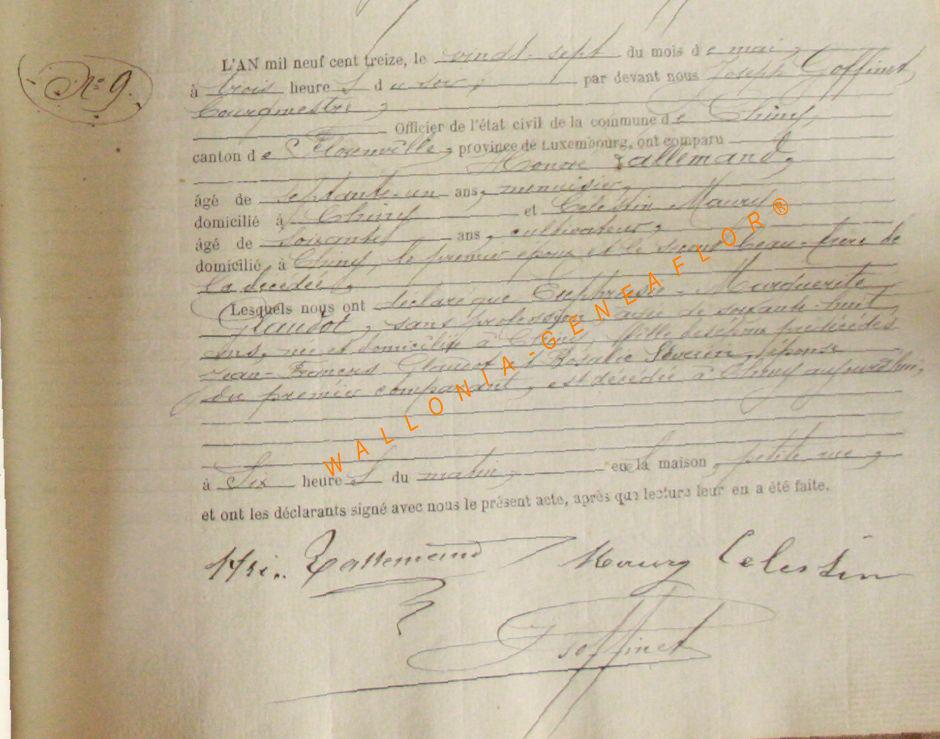 N° 9.
L'AN mil neuf cent treize, le vingt-sept du mois de mai,
à trois heures du soir, par devant nous Joseph Goffinet,
bourgmestre,
Officier de l'état civil de la commune de Chiny,
canton de Florenville, province de Luxembourg, ont comparu
Honoré Lallemand,
âgé de septante-un ans, menuisier,
domicilié à Chiny et Célestin Maury
âgé de soixante ans, cultivateur,
domicilié à Chiny, le premier époux et le second beau-frère de
la décédée,
Lesquels nous ont déclaré que Euphrasie-Marguerite
Glaudot, sans profession, âgée de soixante-huit
ans, née et domiciliée à Chiny, fille des prédécédés
Jean-François Glaudot et Rosalie Séverin, épouse
du premier comparant, est décédée à Chiny aujourd'hui,
à six heures du matin, en la maison, petite rue,
et ont les déclarants signé avec nous le présent acte, après que lecture leur en a été faite.
Lallemand Maury Celestin
J Goffinet
WALLONIA-GENEAFLOR®